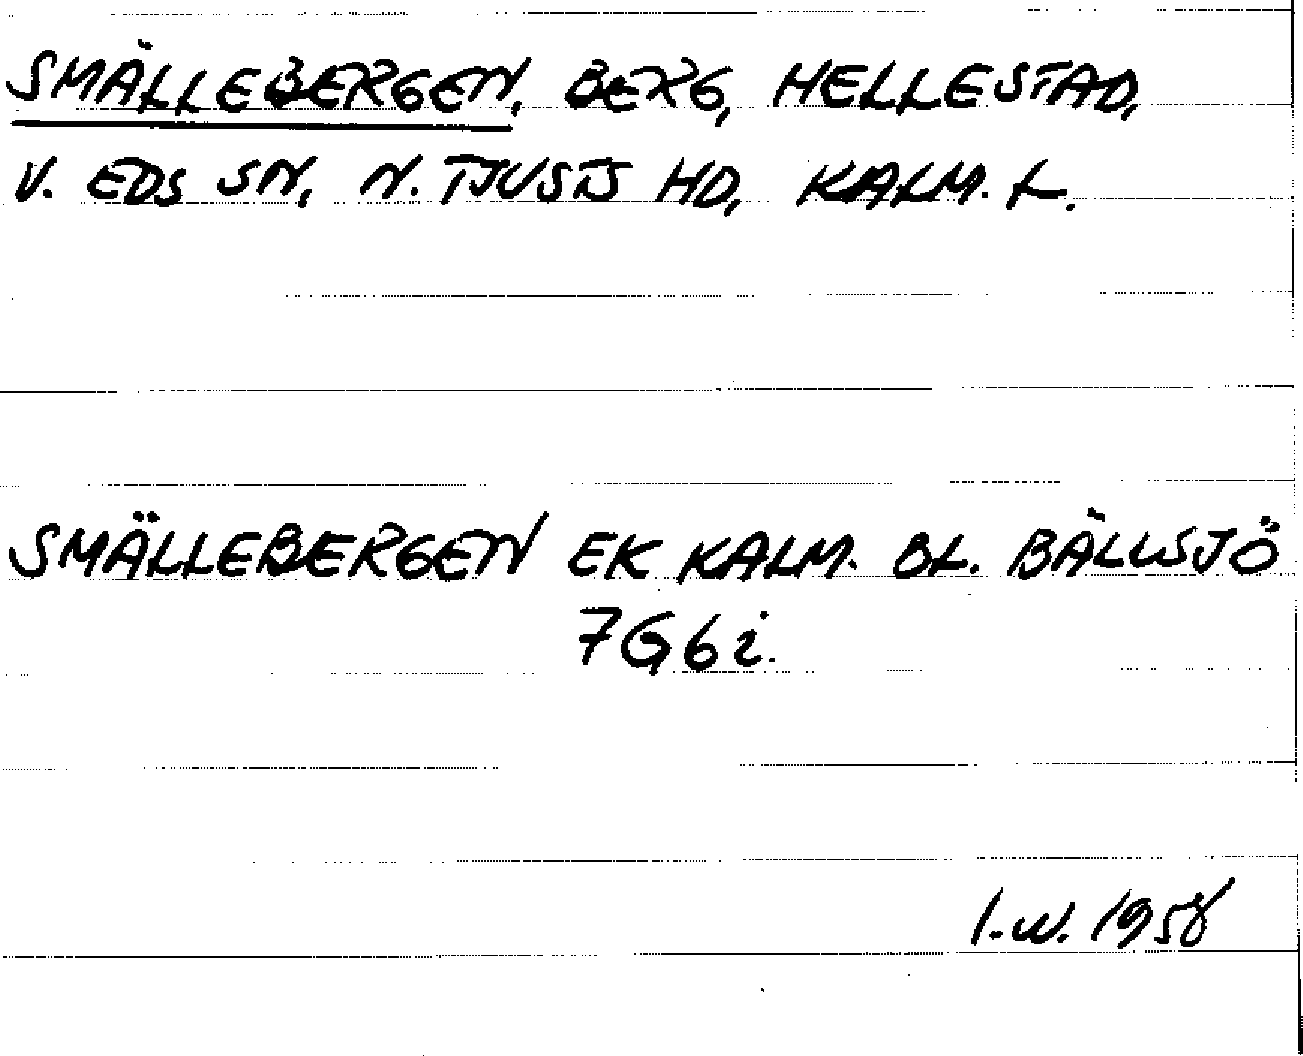 SMÄLLEBERGEN, BERG, HELLESTAD,
V. EDS SN, N. TJUSTS HD, KALM. L.
SMÄLLEBERGEN EK KALM. BL. BÄLLSJÖ
7G6i.
I.W. 1958